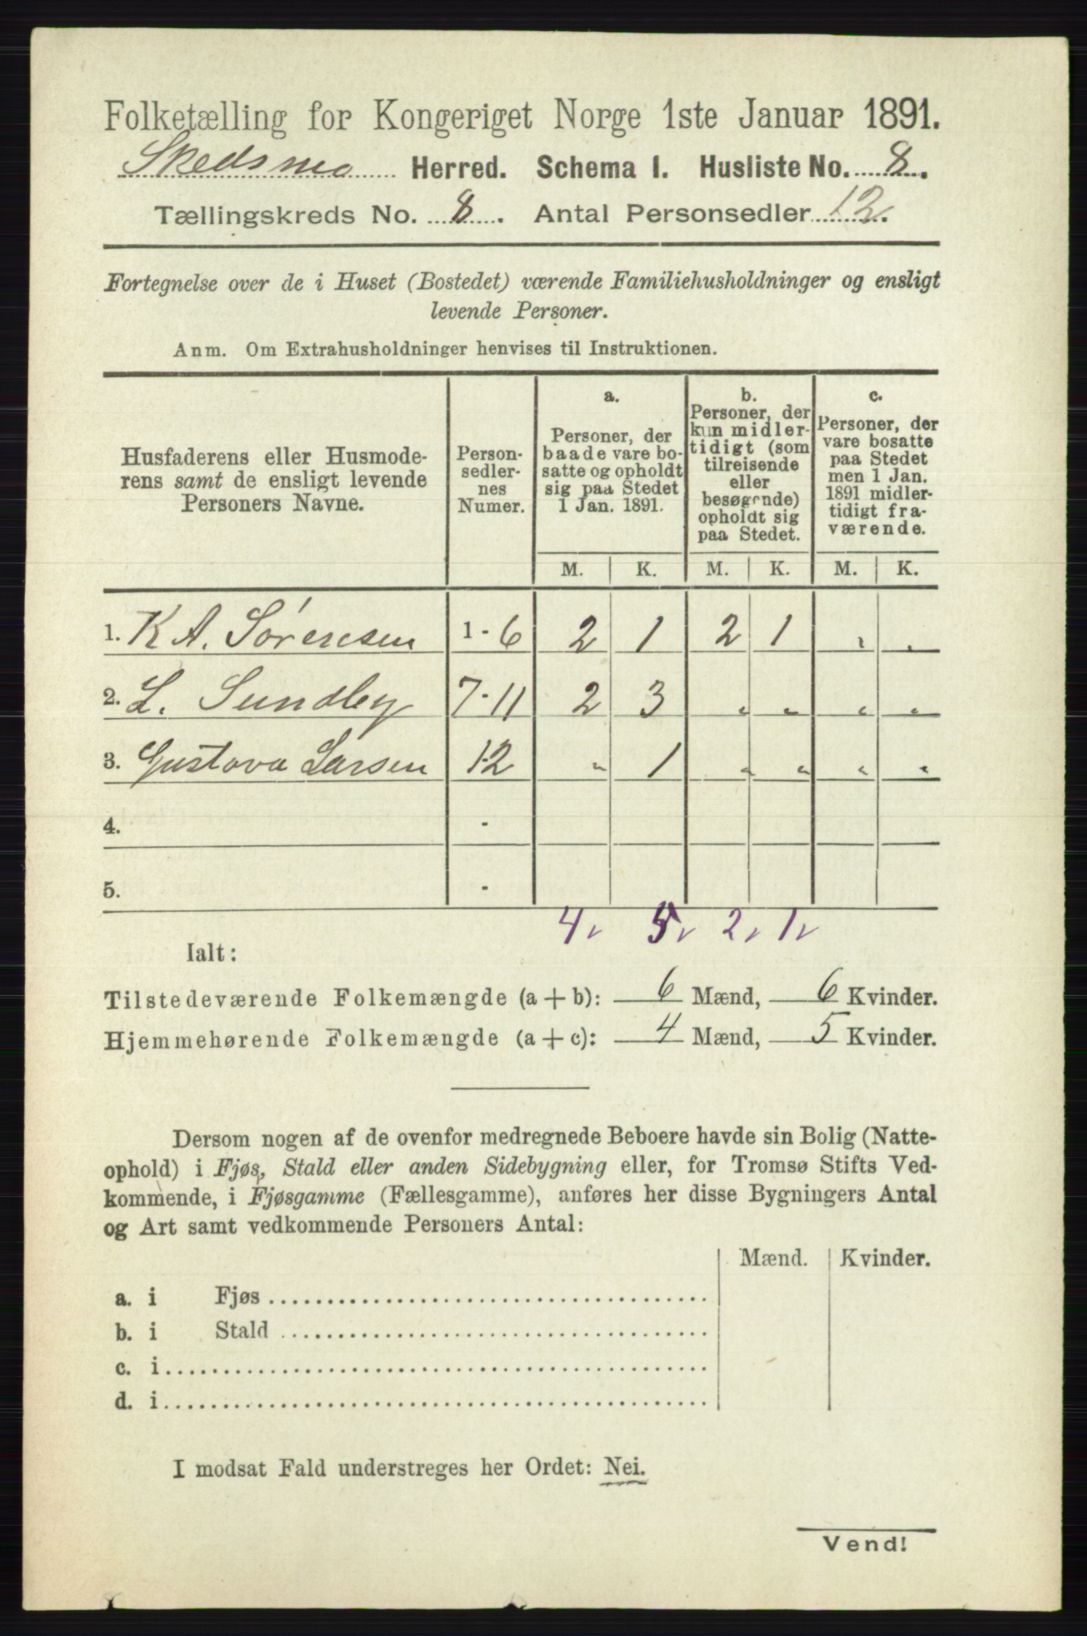 Folketælling for Kongeriget Norge 1ste Januar 1891.
Skedsmo Herred. Schema I. Husliste No. 8.
Tællingskreds No. 8. Antal Personsedler 12.
Fortegnelse over de i Huset (Bostedet) værende Familiehusholdninger og ensligt
levende Personer.
Anm. Om Extrahusholdninger henvises til Instruktionen.
Husfaderens eller Husmode-
rens samt de ensligt levende
Personers Navne.
Person-
sedler-
nes
Numer.
a.
Personer, der
baade vare bo-
satte og opholdt
sig paa Stedet
1 Jan. 1891.
b.
Personer, der
kun midler-
tidigt (som
tilreisende
eller
besøgende)
opholdt sig
paa Stedet.
c.
Personer, der
vare bosatte
paa Stedet
men 1 Jan.
1891 midler-
tidigt fra-
værende.
M. K. M. K. M. K.
1. K A. Sørensen 1-6 2 1 2 1 „ „
2. L. Sundby 7-11 2 3 „ „ „ „
3. Gustava Larsen 12 „ 1 „ „ „ „
4. -
5. -
4 5 2 1
Ialt:
Tilstedeværende Folkemængde (a + b): 6 Mænd, 6 Kvinder.
Hjemmehørende Folkemængde (a + c): 4 Mænd, 5 Kvinder.
Dersom nogen af de ovenfor medregnede Beboere havde sin Bolig (Natte-
ophold) i Fjøs, Stald eller anden Sidebygning eller, for Tromsø Stifts Ved-
kommende, i Fjøsgamme (Fællesgamme), anføres her disse Bygningers Antal
og Art samt vedkommende Personers Antal:
Mænd. Kvinder.
a. i Fjøs
b. i Stald
c. i
d. i
I modsat Fald understreges her Ordet: Nei.
Vend!